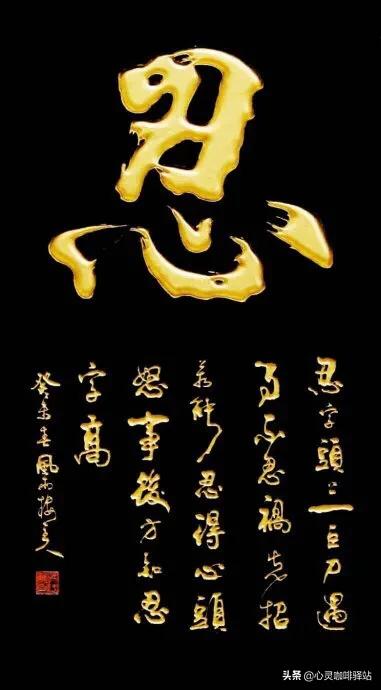 忍
忍字頭上一巨刀遇
事不忍禍先招
若能忍得心頭
怒事後方知忍
字高
癸未春風雨人
头条 @心灵咖啡驿站